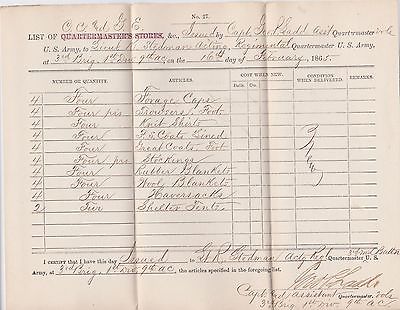 No. 27.
C. C. & G. E.
LIST OF QUARTERMASTER'S STORES, &c., Issued by Capt. Ladd Asst Quartermaster Vols
U. S. Army, to Lieut. R. Hodman Acting Regimental Quartermaster U. S. Army, at
3rd Brig 1st Div 9th AC on the 16th day of February, 1865
NUMBER OR QUANTITY. ARTICLES. COST WHEN NEW. CONDITION WHEN DELIVERED.
Dolls. Cts.
4 Four Forage Caps
4 Four prs Trousers, Foot
4 Four Knit Shirts
4 Four Coats Lined
4 Four Great Coats, Foot
4 Four prs Stockings
4 Four Rubber Blankets
4 Four Wool Blankets
4 Four Haversacks
2 Shelter Tents
New
I CERTIFY that I have this day Issued to R. Hodman Actg Reg Quartermaster U. S.
Army, at 3rd Brig 1st Div 9th AC, the articles specified in the foregoing list.
Ladd
Capt and Assistant Quartermaster, Vols
3rd Brig 1st Div 9th AC